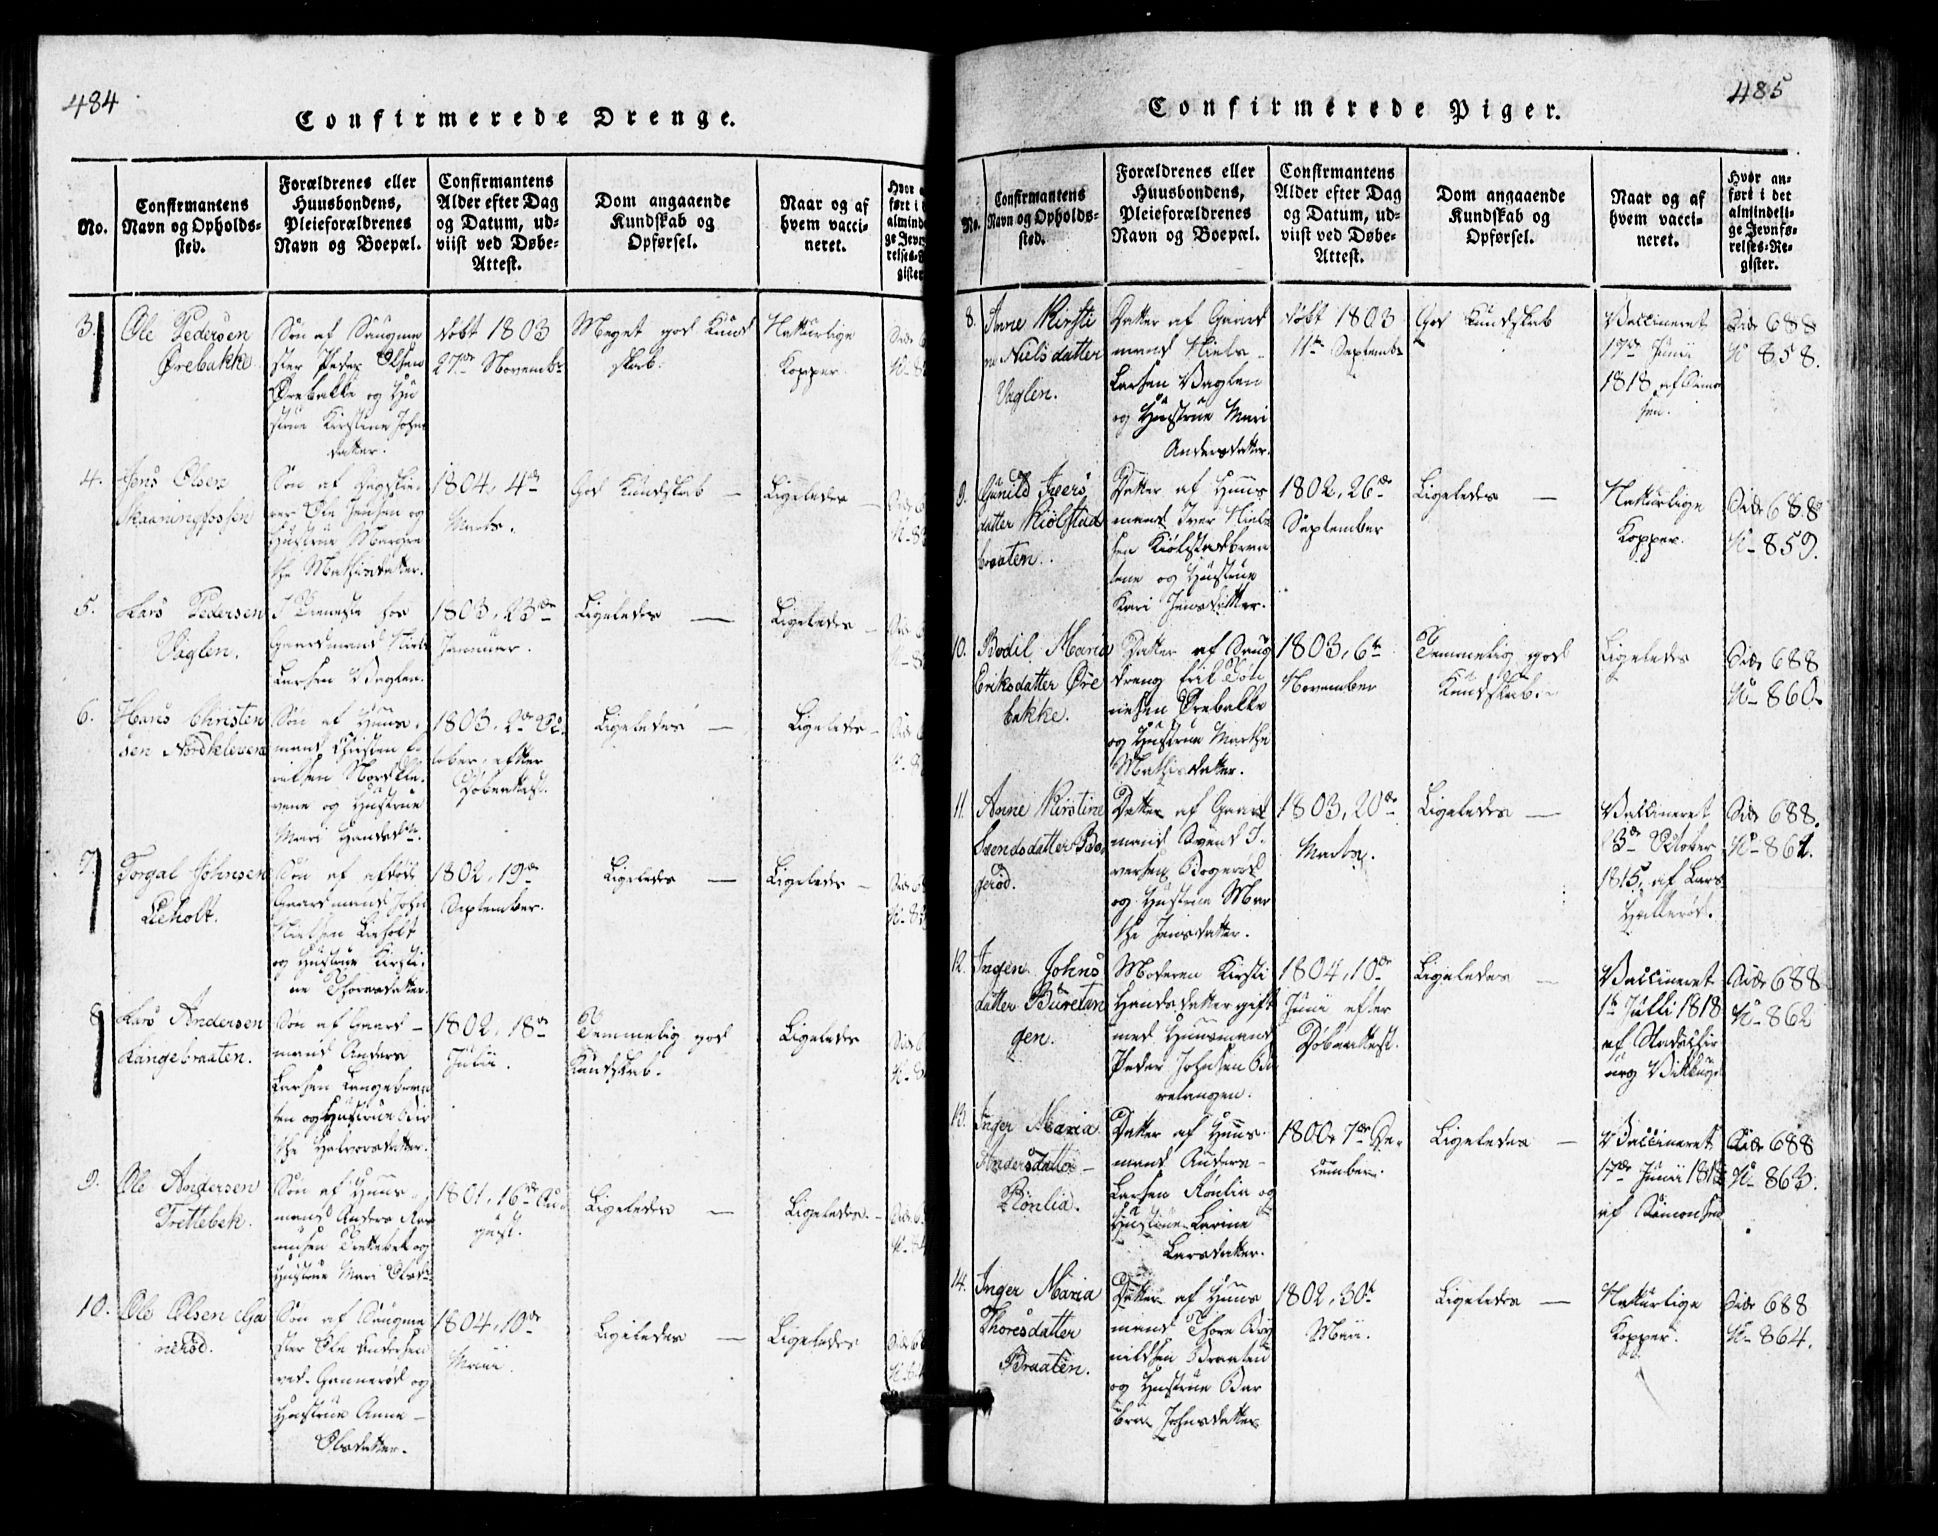 484
Confirmerede Drenge.
No.
Confirmantens
Navn og Opholds-
sted.
Forældrenes eller
Huusbondens,
Pleieforældrenes
Navn og Boepæl.
Confirmantens
Alder efter Dag
og Datum, ud-
viist ved Døbe-
Attest.
Dom angaaende
Kundskab og
Opførsel.
Naar og af
hvem vacci-
neret.
3.
Ole Pedersen
Ørebakke
Søn af Saugme
ster Peder Olsen
Ørebakke og Hu
strue Kirstine Johns
datter.
døbt 1803
27de Novembr
Meget god Kund
skab.
Naturlige
Kopper.
4.
Jens Olsen
Skaaningfossen
Søn af
Ole Jensen og
Hustrue Margre
the Mathisdatter.
1804, 4de
Marts.
God Kundskab —
Ligeledes —
5.
Lars Pedersen
Vaglen.
I Tieneste hos
Gaardmand Niels
Larsen Vaglen.
1803, 23de
Januar.
Ligeledes —
Ligeledes —
6.
Hans Christen
sen Nordkleven
Søn af Huus-
mand Christen
Nordkle-
vene og Hustrue
Mari Hansdtr.
1803, 2de Oc-
tober, efter
Døbeattest.
Ligeledes —
Ligeledes —
7.
Torgal Johnsen
Lieholt.
Søn af afdøde
Gaardmand John
Nielsen Lieholt
og Hustrue Kirsti-
ne Thoresdatter.
1802, 19de
September.
Ligeledes —
Ligeledes —
8.
Lars Andersen
Langebraaten.
Søn af Gaard-
mand Anders
Larsen Langebraa
ten og Hustrue Bir
the Halvorsdatter.
1802, 18de
Junii.
Temmelig god
Kundskab.
Ligeledes
9.
Ole Andersen
Trettebek.
Søn af Huus-
mand Anders Ras
musen Trettebek og
Hustrue Mari Olsdtr
1801, 16de Au-
gust.
Ligeledes —
Ligeledes. —
10.
Ole Olsen Ga
nerød.
Søn af Saugme
ster Ole Andersen
ved Gannerød og
Hustrue Anne
Olsdatter.
1804, 10de
Maii.
Ligeledes —
Ligeledes
485
Confirmerede Piger.
No.
Confirmantens
Navn og Opholds-
sted.
Forældrenes eller
Huusbondens,
Pleieforældrenes
Navn og Boepæl.
Confirmantens
Alder efter Dag
og Datum, ud-
viist ved Døbe-
Attest.
Dom angaaende
Kundskab og
Opførsel.
Naar og af
hvem vacci-
neret.
Hvor an-
ført i det
almindeli-
ge Jevnfø-
relses-Re-
gister.
8.
Anne Kirsti
ne Nielsdatter
Vaglen.
Datter af Gaard
mand Niels
Larsen Vaglen
og Hustrue Mari
Andersdatter.
døbt 1803
11te Septembr
God Kundskab
Vaccineret
17de Junii
1818, af Simon
sen.
Side 688
No 858.
9.
Gunild Ivers
datter Kiølstad
braaten.
Datter af Huus
mand Iver Niel
sen Kiølstadbraa
tene og Hustrue
Kari Jensdatter.
1802, 26de
September
Ligeledes —
Naturlige
Kopper.
Side 688
No 859.
10.
Bodil Maria
Eriksdatter Øre
bakke.
Datter af Saug
dreng Erik Tøn
nesen Ørebakke
og Hustrue Marthe
Mathisdatter.
1803, 6te
November
Temmelig god
Kundskab.
Ligeledes
Side 688
No 860.
11.
Anne Kirstine
Svendsdatter Bø-
gerød.
Datter af Gaard
mand Svend I-
versen Bøgerød
og Hustrue Mar
the Jensdatter.
1803, 20de
Marts.
Ligeledes —
Vaccineret
3de October
1815, af Lars
Hallerød.
Side 688.
No 861.
12.
Ingen Johns
datter Buretan
gen.
Moderen Kirsti
Hansdatter gift
med Huusmand
Peder Johnsen Bu
retangen.
1804, 10de
Junii efter
Døbeattest.
Ligeledes —
Vaccineret
1te Julli 1818
af Stadschir
urg
Side 688
No 862
13.
Inger Maria
Andersdatter
Rønlia.
Datter af Huus-
mand Anders
Larsen Rønlia og
Hustrue Larine
Larsdatter.
1800, 7de De-
cember.
Ligeledes —
Vaccineret
17de Junii 1818
af Simonsen
Side 688
No 863.
14.
Inger Maria
Thoresdatter
Braaten.
Datter af Huus
mand Thore Bøy
nildsen Braaten
og Hustrue Bar
bra Johnsdatter
1802, 30te
Maii.
Ligeledes —
Naturlige
Kopper.
Side 688
No 864.